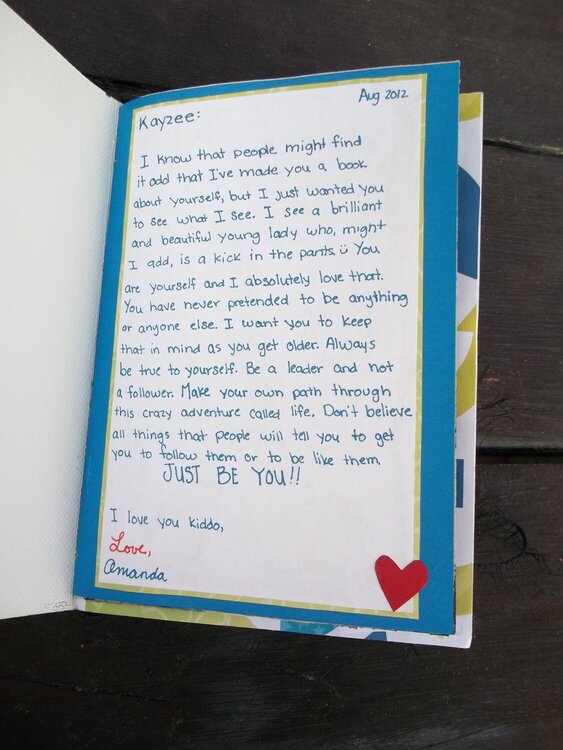 Aug 2012
Kayzee:
I know that people might find
it odd that I've made you a book
about yourself, but I just wanted you
to see what I see. I see a brilliant
and beautiful young lady who, might
I add, is a kick in the pants. You
are yourself and I absolutely love that.
You have never pretended to be anything
or anyone else. I want you to keep
that in mind as you get older. Always
be true to yourself. Be a leader and not
a follower. Make your own path through
this crazy adventure called life. Don't believe
all things that people will tell you to get
you to follow them or to be like them.
JUST BE YOU!!
I love you kiddo,
Love,
Amanda